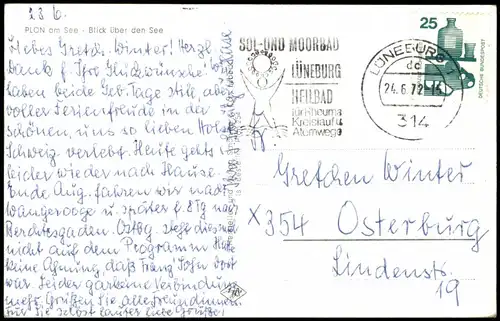 23 6.
PLÖN am See - Blick über den See
Liebes Gretch. Winter! Herzl.
Dank f. Ihre Glückwünsche. Wir
haben beide Geb. Tage still, aber
voller Ferienfreude in der
schönen, uns so lieben Holst.
Schweiz verlebt. Heute geht's
leider wieder nach Hause.
Ende Aug. fahren wir nach
Wangerooge u. später f. 8 Tg nach
Berchtesgaden. Ostbg. steht diesmal
nicht auf dem Programm. Habe
keine Ahnung, daß Franz Sohn dort
war. Leider gar keine Verbindung
mehr. Grüßen Sie alle Freundinnen.
Für Sie selbst lauter liebe Grüße!
SOL- UND MOORBAD
LÜNEBURG
HEILBAD
für Rheuma
Kreislauf u.
Atemwege
LÜNEBURG 1
dd
24.6.72-14
314
25
DEUTSCHE BUNDESPOST
Gretchen Winter
X 354 Osterburg
Lindenstr.
19